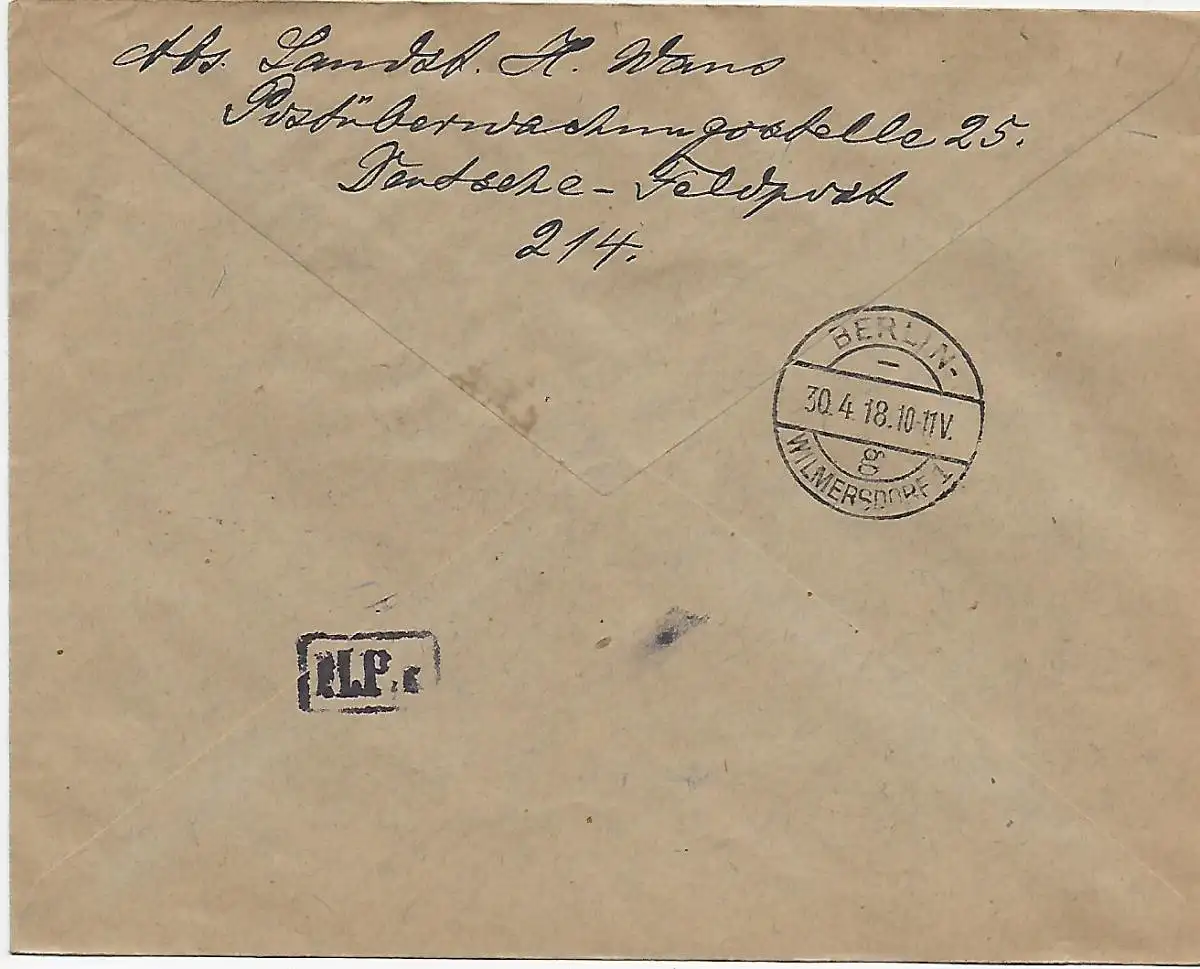 Abs. Landst. H. Wans
Postüberwachungsstelle 25.
Deutsche-Feldpost
214.
BERLIN-
30.4.18.10-11V.
WILMERSDORF 1